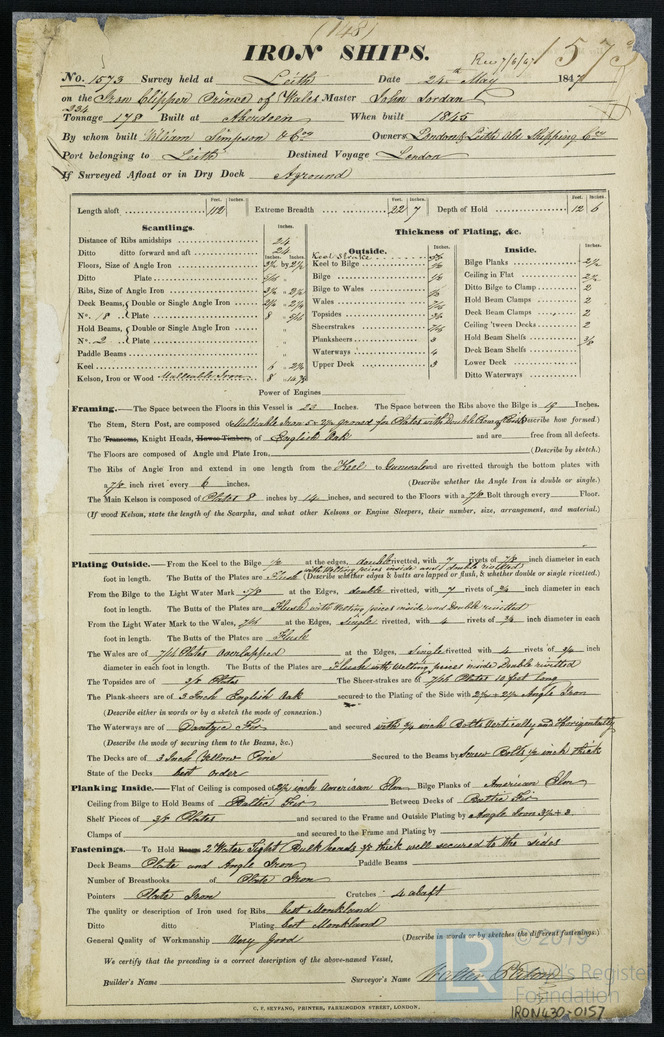 (148)
IRON SHIPS.
Rec 7/6/47
1573
No. 1573 Survey held at Leith Date 24th May 1847
on the Iron Clipper Prince of Wales Master John Jordan
234
Tonnage 178 Built at Aberdeen When built 1845
By whom built William Simpson & Co Owners London & Leith Old Shipping Co
Port belonging to Leith Destined Voyage London
If Surveyed Afloat or in Dry Dock Aground
Feet. Inches. Feet. Inches. Feet. Inches.
Length aloft 112 Extreme Breadth 22 7 Depth of Hold 12 6
Scantlings.
Inches.
Distance of Ribs amidships 24
Ditto ditto forward and aft 24
Inches. Inches.
Floors, Size of Angle Iron 3½ by 2½
Ditto Plate 5/16
Ribs, Size of Angle Iron
Deck Beams, Double or Single Angle Iron
No. 18 Plate 8 " 5/16
Hold Beams, Double or Single Angle Iron
No. 2 Plate
Paddle Beams
Keel
Kelson, Iron or Wood Malleable Iron
Thickness of Plating, &c.
Outside.
Inches.
Keel Strake
Keel to Bilge
Bilge
Bilge to Wales
Wales 7/16
Topsides 3/8
Sheerstrakes 7/16
Planksheers 3
Waterways 4
Upper Deck 3
Inside.
Inches.
Bilge Planks 2½
Ceiling in Flat 2½
Ditto Bilge to Clamp 2
Hold Beam Clamps 2
Deck Beam Clamps 2
Ceiling 'tween Decks 2
Hold Beam Shelfs 3/8
Deck Beam Shelfs
Lower Deck
Ditto Waterways
Power of Engines
Framing.—The Space between the Floors in this Vessel is 23 Inches. The Space between the Ribs above the Bilge is 19 Inches.
The Stem, Stern Post, are composed of Malleable Iron 5 × 2½ grooved for Plates with Double Rows of Rivets (Describe how formed.)
The Transoms, Knight Heads, Hawse Timbers, of English Oak and are free from all defects.
The Floors are composed of Angle and Plate Iron, (Describe by sketch.)
The Ribs of Angle Iron and extend in one length from the Keel to Gunwale and are rivetted through the bottom plates with
a 7/8 inch rivet every 6 inches. (Describe whether the Angle Iron is double or single.)
The Main Kelson is composed of Plates 8 inches by 14 inches, and secured to the Floors with a 7/8 Bolt through every Floor.
(If wood Kelson, state the length of the Scarphs, and what other Kelsons or Engine Sleepers, their number, size, arrangement, and material.)
Plating Outside.—From the Keel to the Bilge at the edges, double rivetted, with 7 rivets of 7/8 inch diameter in each
with Welting pieces inside and double rivetted
foot in length. The Butts of the Plates are Flush (Describe whether edges & butts are lapped or flush, & whether double or single rivetted.)
From the Bilge to the Light Water Mark at the Edges, double rivetted, with 7 rivets of 3/4 inch diameter in each
foot in length. The Butts of the Plates are Flush with Welting pieces inside and Double rivetted
From the Light Water Mark to the Wales, 7/16 at the Edges, Single rivetted, with 4 rivets of 3/4 inch diameter in each
foot in length. The Butts of the Plates are Flush
The Wales are of 7/16 Plates Overlapped at the Edges, Single rivetted with 4 rivets of 3/4 inch
diameter in each foot in length. The Butts of the Plates are Flush with Welting pieces inside Double rivetted
The Topsides are of 3/8 Plates The Sheer-strakes are of 7/16 Plates 10 feet long
The Plank-sheers are of 3 Inch English Oak secured to the Plating of the Side with 2½ × 2½ Angle Iron
(Describe either in words or by a sketch the mode of connexion.)
The Waterways are of Dantzic Fir and secured with ¾ inch Bolts Vertically and Horizontally
(Describe the mode of securing them to the Beams, &c.)
The Decks are of 3 Inch Yellow Pine Secured to the Beams by Screw Bolts ½ inch thick
State of the Decks best order
Planking Inside.—Flat of Ceiling is composed of 2½ inch American Elm Bilge Planks of American Elm
Ceiling from Bilge to Hold Beams of Baltic Fir Between Decks of Baltic Fir
Shelf Pieces of 3/8 Plates and secured to the Frame and Outside Plating by Angle Iron 3½ × 3
Clamps of and secured to the Frame and Plating by
Fastenings.—To Hold Beams 2 Water Tight Bulk heads thick well secured to the sides
Deck Beams Plate and Angle Iron Paddle Beams
Number of Breasthooks of Plate Iron
Pointers Plate Iron Crutches 4 abaft
The quality or description of Iron used for Ribs best Monkland
Ditto ditto Plating best Monkland
General Quality of Workmanship Very Good (Describe in words or by sketches the different fastenings.)
We certify that the preceding is a correct description of the above-named Vessel,
Builder's Name Surveyor's Name Walter Paton
C. F. SEYFANG, PRINTER, FARRINGDON STREET, LONDON.
LR
© 2019
Lloyd's Register
Foundation
IRON430-0157